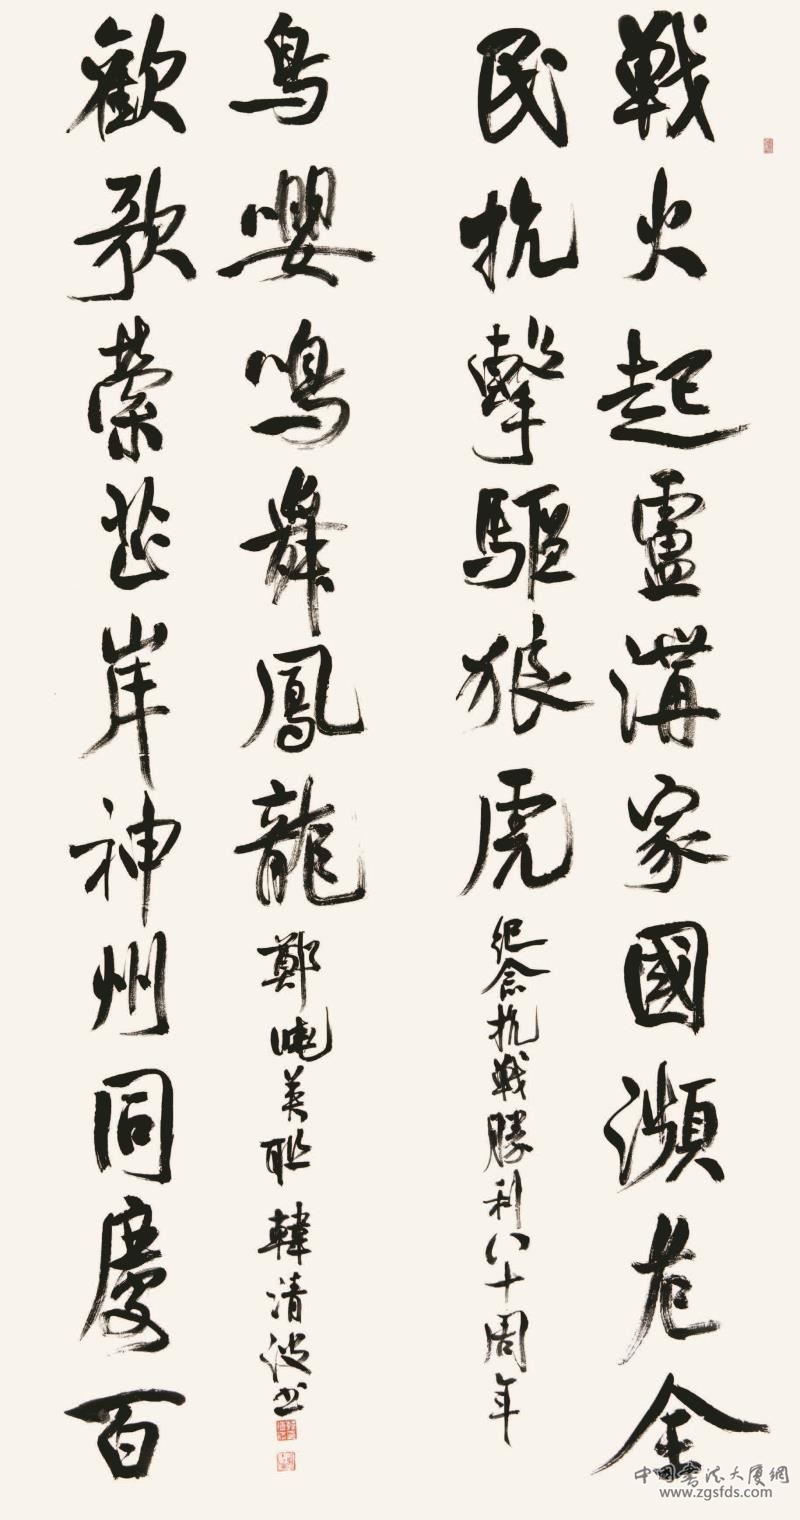 戰火起盧溝家國瀕危全
民抗擊驅狼虎
紀念抗戰勝利八十周年
歡歌縈芷岸神州同慶百
鳥嚶鳴舞鳳龍
鄭曉英聯 韓清波書
中国书法大厦網
www.zgsfds.com